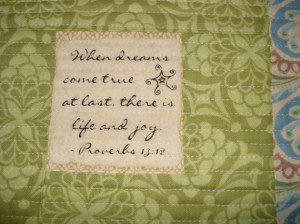 When dreams
come true
at last, there is
life and joy.
- Proverbs 13:12